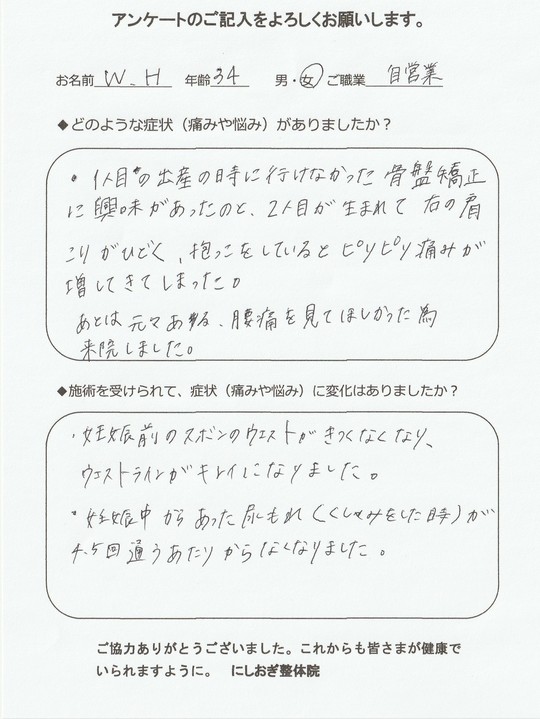 アンケートのご記入をよろしくお願いします。
お名前 W.H 年齢 34 男・女 ご職業 自営業
◆どのような症状（痛みや悩み）がありましたか？
・1人目の出産の時に行けなかった骨盤矯正
に興味があったのと、2人目が生まれて右の肩
こりがひどく、抱っこをしているとピリピリ痛みが
増してきてしまった。
あとは元々ある、腰痛を見てほしかった為
来院しました。
◆施術を受けられて、症状（痛みや悩み）に変化はありましたか？
・妊娠前のズボンのウエストがきつくなくなり、
ウエストラインがキレイになりました。
・妊娠中からあった尿もれ（くしゃみをした時）が
4.5回通うあたりからなくなりました。
ご協力ありがとうございました。これからも皆さまが健康で
いられますように。 にしおぎ整体院